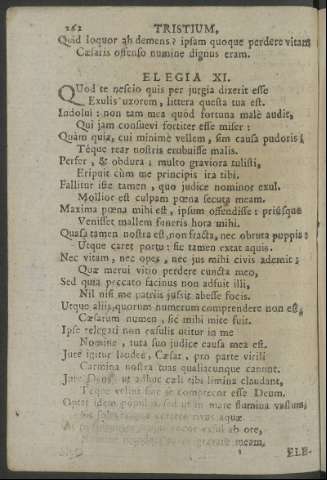 262 TRISTIUM,
Quid loquor ah demens? ipsam quoque perdere vitam
Cæsaris offenso numine dignus eram.
ELEGIA XI.
QUod te nescio quis per jurgia dixerit esse
Exulis uxorem, littera questa tua est.
Indolui: non tam mea quòd fortuna malè audit,
Qui jam consuevi fortiter esse miser:
Quàm quia, cui minimè vellem, sim causa pudoris;
Téque rear nostris erubuisse malis.
Perfer, & obdura: multo graviora tulisti,
Eripuit cùm me principis ira tibi.
Fallitur iste tamen, quo judice nominor exul.
Mollior est culpam pœna secuta meam.
Maxima pœna mihi est, ipsum offendisse: priúsque
Venisset mallem funeris hora mihi.
Quassa tamen nostra est, non fracta, nec obruta puppis:
Utque caret portu: sic tamen extat aquis.
Nec vitam, nec opes, nec jus mihi civis ademit;
Quæ merui vitio perdere cuncta meo,
Sed quia peccato facinus non adfuit illi,
Nil nisi me patriis jussit abesse focis.
Utque aliis, quorum numerum comprendere non est,
Cæsareum numen, sic mihi mite fuit.
Ipse relegati non exsulis utitur in me
Nomine, tuta suo judice causa mea est.
Jure igitur laudes, Cæsar, pro parte virili
Carmina nostra tuas qualiacunque canunt.
Jure Deos ut adhuc cæli tibi limina claudant,
Téque velint sine se comprecor esse Deum.
Optat idem populus, sed ut in mare flumina vastum,
aquæ
At ore,
meam,
ELE-